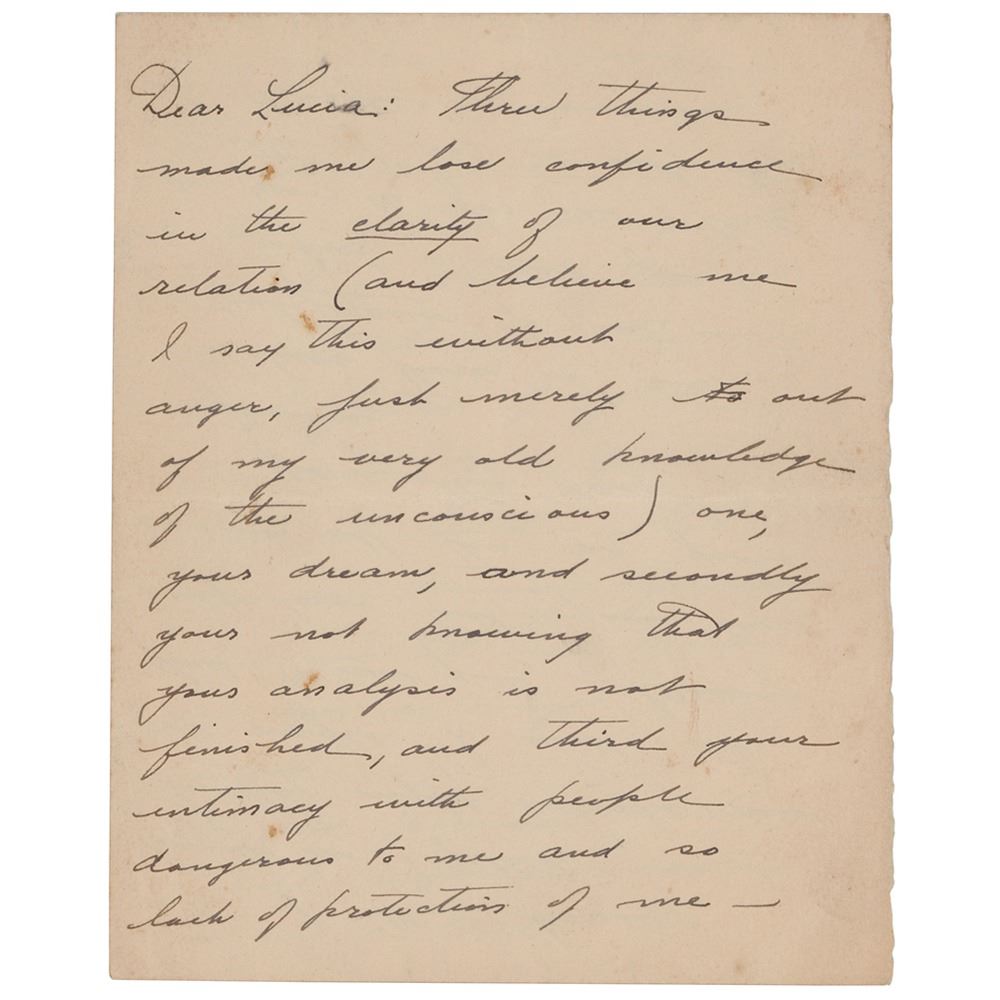 Dear Lucia: Three things
made me lose confidence
in the clarity of our
relation (and believe me
I say this without
anger, just merely to out
of my very old knowledge
of the unconscious) one,
your dream, and secondly
your not knowing that
your analysis is not
finished, and third your
intimacy with people
dangerous to me and so
lack of protection of me —